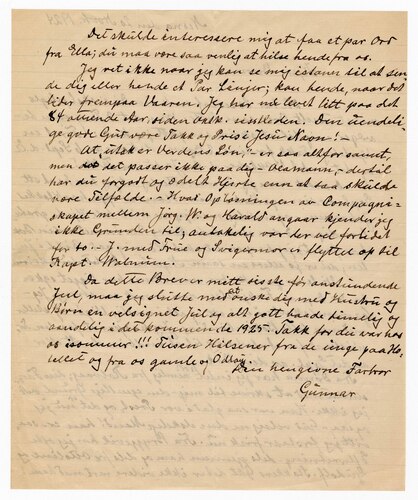 Det skulde interessere mig at faa et par Ord
fra Ella; du maa være saa venlig at hilse hende fra os.
Jeg vet ikke naar jeg kan se mig istand til at sen-
de dig eller hende et Par Linjer; kan hende, naar det
lider frempaa Vaaren. Jeg har nu levet litt paa det
84 attuende Aar siden Onk. Den uendeli-
ge gode Gud være Takk og Pris i Jesu Navn! –
At "utak er Verdens Løn," er saa altfor sandt,
men det passer ikke paa dig – – dertil
har du forgodt og ædelt Hjerte enn at saa skulde
være Tilfelde. – Hvad Opløsningen av Compagni-
skapet mellem Jørg. W. og Harald angaar kjender jeg
ikke Grunden til; antakelig var der vel fortidet
for to. – J. med Frue og Svigermor er flyttet op til
Kapt.
Da dette Brev er mitt sisste før anstundende
Jul, maa jeg slutte med at ønske dig med Hustru og
Børn en velsignet Jul og alt godt baade timelig og
aandelig i det kommende 1925. Takk for de var hos
os isommer!!! Tusen Hilsener fra de unge paa Ho-
tellet og fra os gamle og
Din hengivne Farbror
Gunnar